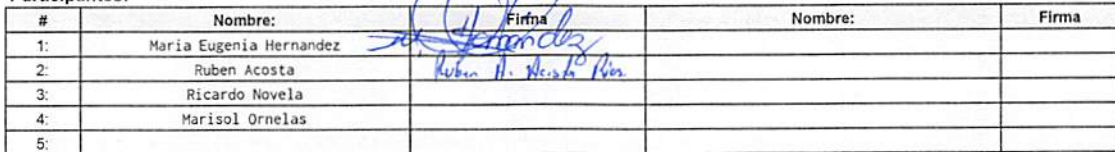 # Nombre: Firma Nombre: Firma
1: Maria Eugenia Hernandez Hernandez
2: Ruben Acosta Ruben A. Acosta Rios
3: Ricardo Novela
4: Marisol Ornelas
5: